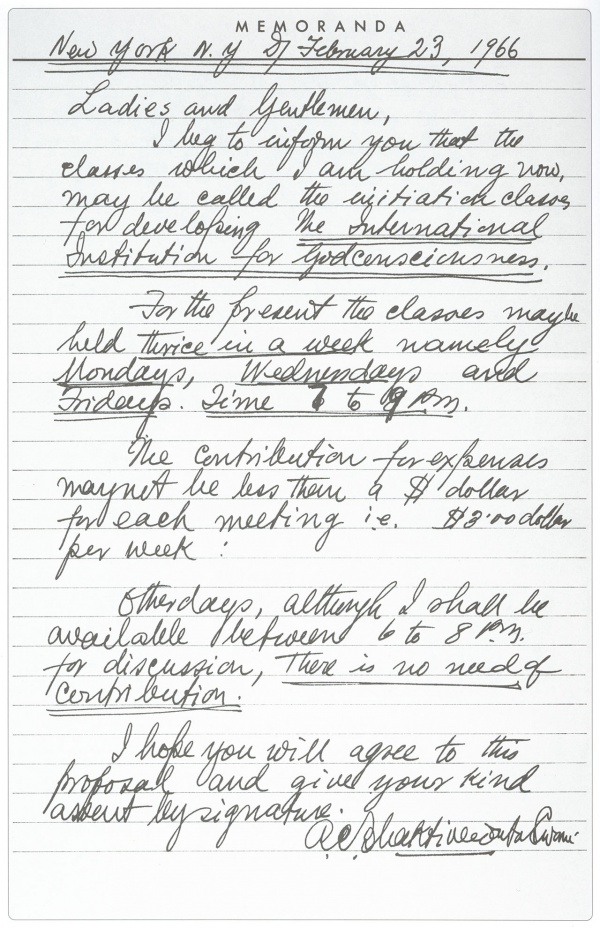 MEMORANDA
New York N.Y D/ February 23, 1966
Ladies and Gentlemen,
I beg to inform you that the
classes which I am holding now,
may be called the initiation classes
for developing The International
Institution for Godconsciousness.
For the present the classes maybe
held thrice in a week namely
Mondays, Wednesdays and
Fridays. Time 7 to 9 P.m.
The contribution for expenses
maynot be less than a $ dollar
for each meeting i.e. $3.00 dollar
per week :
Otherdays, although I shall be
available between 6 to 8 P.m.
for discussion, There is no need of
Contribution.
I hope you will agree to this
proposal and give your kind
assent by signature.
A.C. Bhaktivedanta Swami